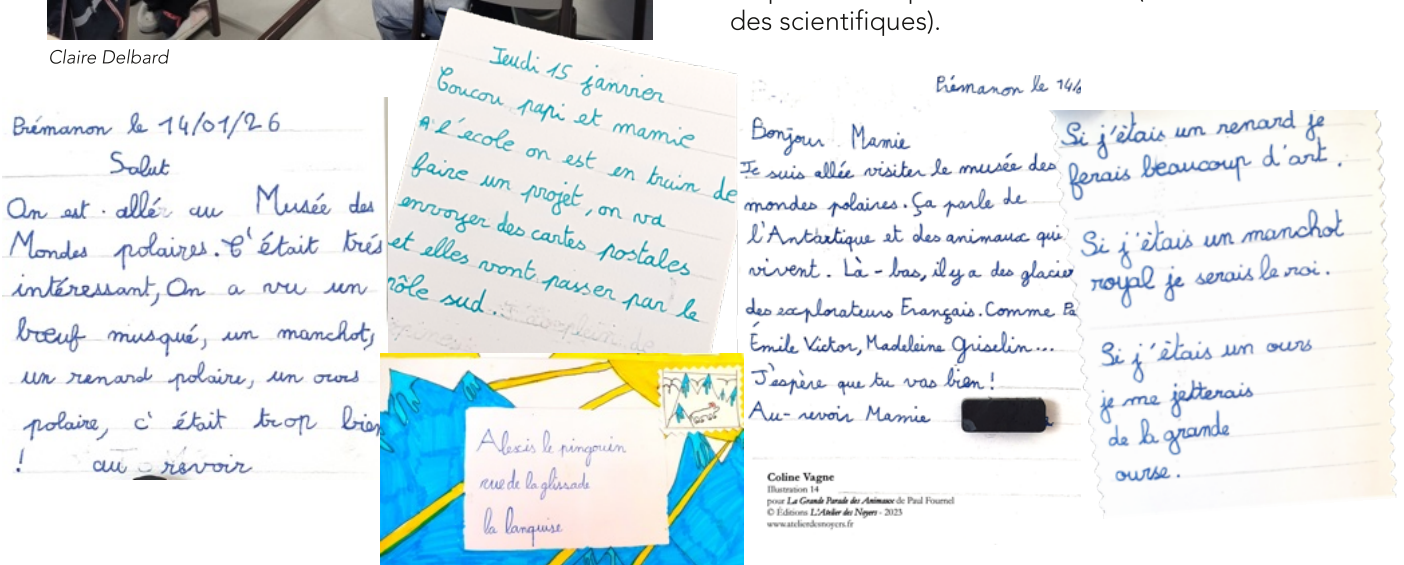 des scientifiques).
Claire Delbard
Brémanon le 14/01/26
Salut
On est allé au Musée des
Mondes polaires. C'était trés
intéressant, On a vu un
bœuf musqué, un manchot,
un renard polaire, un ours
polaire, c'était trop bien
! au revoir
Jeudi 15 janvier
Coucou papi et mamie
A l'ecole on est en train de
faire un projet, on va
envoyer des cartes postales
et elles vont passer par le
pôle sud.
Alexis le pingouin
rue de la glissade
la banquise
Prémanon le 14/
Bonjour Mamie
Je suis allée visiter le musée des
mondes polaires. Ça parle de
l'Antartique et des animaux qui
vivent. Là-bas, il y a des glacier
des explorateurs Français. Comme Pa
Émile Victor, Madeleine Griselin...
J'espère que tu vas bien!
Au-revoir Mamie
Coline Vagne
Illustration 14
pour La Grande Parade des Animaux de Paul Fournel
© Éditions L'Atelier des Noyers - 2023
www.atelierdesnoyers.fr
Si j'étais un renard je
ferais beaucoup d'art.
Si j'étais un manchot
royal je serais le roi.
Si j'étais un ours
je me jetterais
de la grande
ourse.